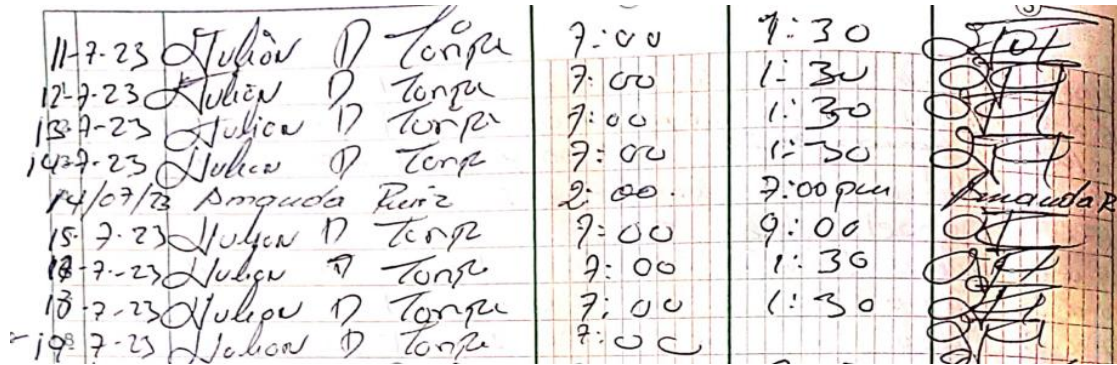 11-7-23 Julian D Tonpe 7:00 1:30
12-7-23 Julian D Tonpe 7:00 1:30
13-7-23 Julian D Tonpe 7:00 1:30
14-7-23 Julian D Tonpe 7:00 1:30
14/07/23 Amanda Ruiz 2:00 7:00 pm Amanda R
15-7-23 Julian D Tonpe 7:00 9:00
7-23 Julian D Tonpe 7:00 1:30
18-7-23 Julian D Tonpe 7:00 1:30
19-7-23 Julian D Tonpe 7:00